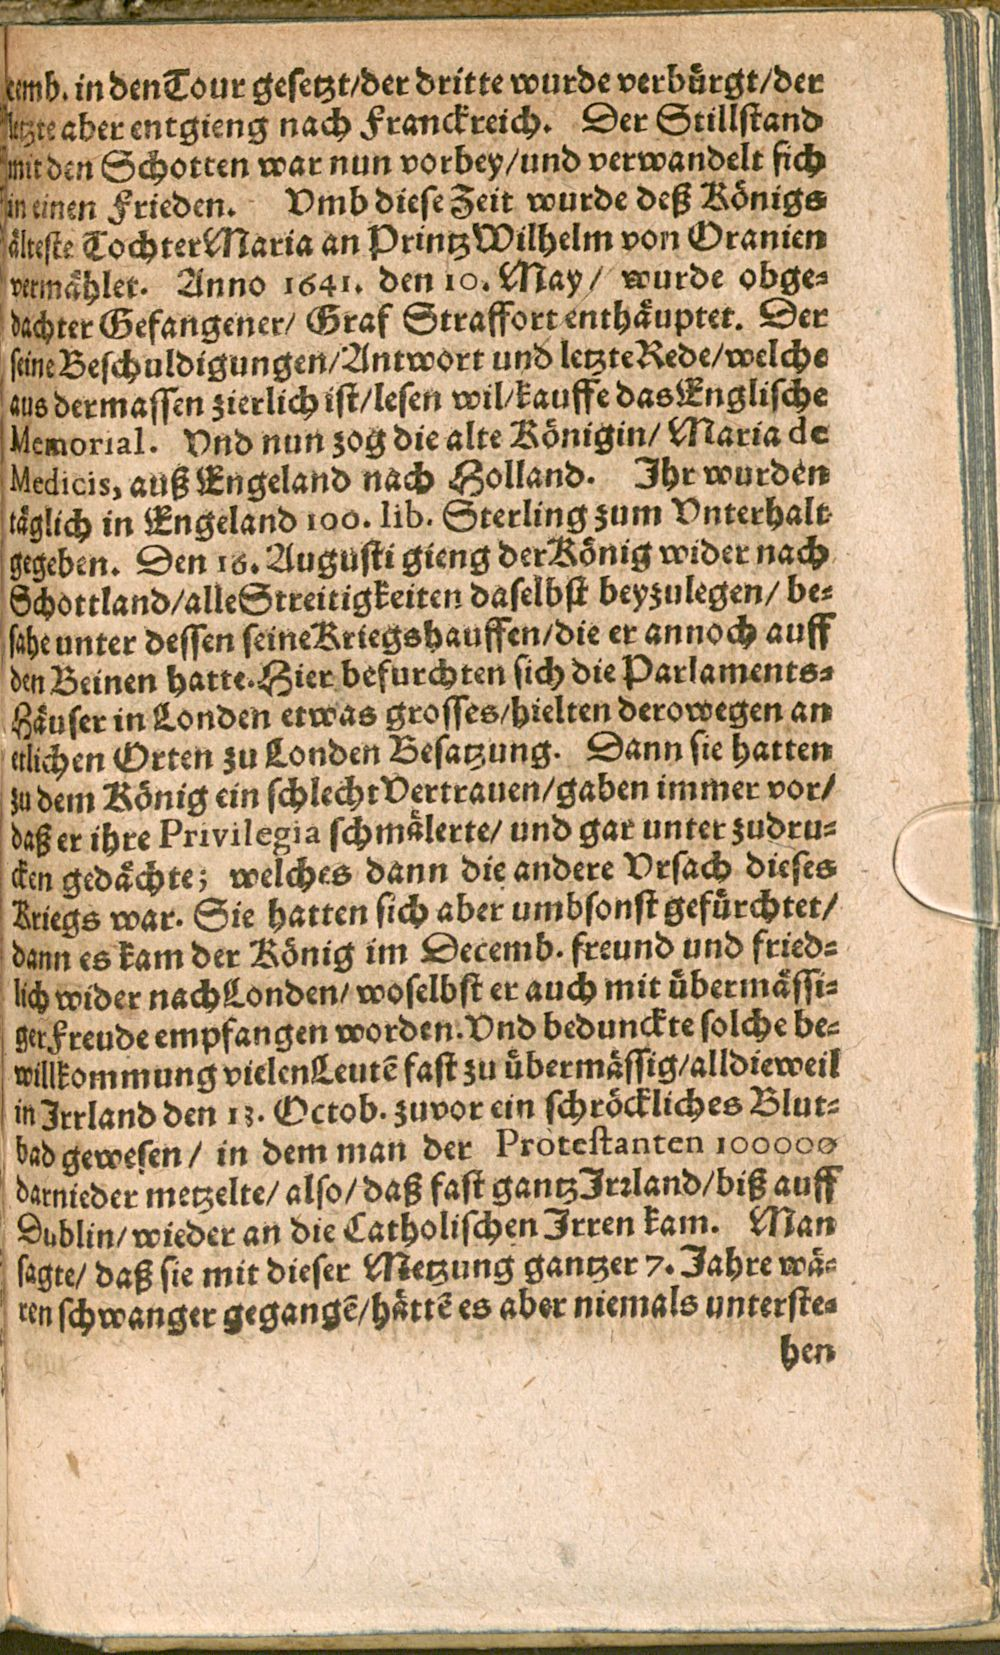 cemb. in den Tour gesetzt/der dritte wurde verbürgt/der
letzte aber entgieng nach Franckreich. Der Stillstand
mit den Schotten war nun vorbey/und verwandelt sich
in einen Frieden. Vmb diese Zeit wurde deß Königs
älteste Tochter Maria an Printz Wilhelm von Oranien
vermählet. Anno 1641. den 10. May/ wurde obge-
dachter Gefangener/ Graf Straffort enthäuptet. Der
seine Beschuldigungen/Antwort und letzte Rede/welche
aus dermassen zierlich ist/lesen wil/kauffe das Englische
Memorial. Vnd nun zog die alte Königin/ Maria de
Medicis, auß Engeland nach Holland. Ihr wurden
täglich in Engeland 100. lib. Sterling zum Vnterhalt
gegeben. Den 16. Augusti gieng der König wider nach
Schottland/alle Streitigkeiten daselbst beyzulegen/ be-
sahe unter dessen seine Kriegshauffen/die er annoch auff
den Beinen hatte. Hier befurchten sich die Parlaments-
Häuser in Londen etwas grosses/hielten derowegen an
etlichen Orten zu Londen Besatzung. Dann sie hatten
zu dem König ein schlecht Vertrauen/gaben immer vor/
daß er ihre Privilegia schmälerte/ und gar unter zudru-
cken gedächte; welches dann die andere Vrsach dieses
Kriegs war. Sie hatten sich aber umbsonst gefürchtet/
dann es kam der König im Decemb. freund und fried-
lich wider nach Londen/ woselbst er auch mit übermässi-
ger Freude empfangen worden. Vnd bedunckte solche be-
willkommung vielen Leutē fast zu übermässig/alldieweil
in Irrland den 13. Octob. zuvor ein schröckliches Blut-
bad gewesen/ in dem man der Protestanten 100000
darnieder metzelte/ also/ daß fast gantz Irrland/biß auff
Dublin/wieder an die Catholischen Irren kam. Man
sagte/ daß sie mit dieser Metzung gantzer 7. Jahre wä-
ren schwanger gegangē/hättē es aber niemals unterste-
hen